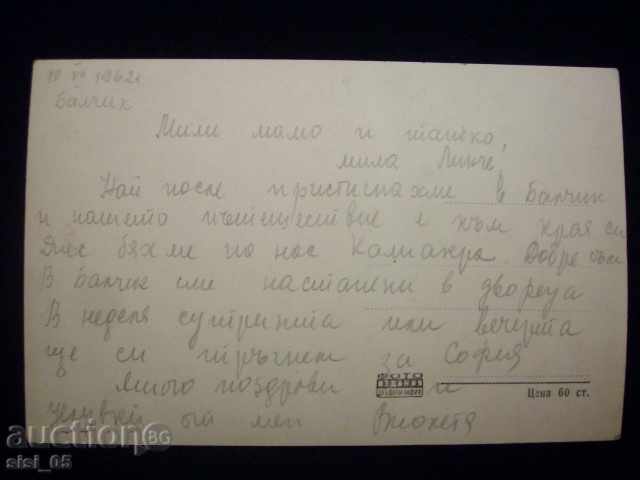 10 VII 1962г
Балчик
Мили мамо и татко,
мила Линче,
Най после пристигнахме в Балчик
и нашето пътешествие е към края си
Днес бяхме на нос Калиакра. Добре съм
В Балчик сме настанени в двореца
В неделя сутринта или вечерта
ще си тръгнем за София
Много поздрави и
целувки от мен Виолета
ФОТО
ИЗДАНИЕ
Цена 60 ст.
auctionBG
sisi_05